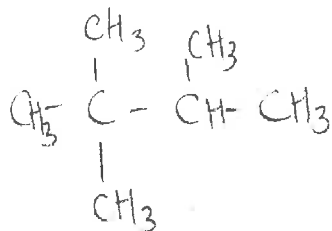 CH3 CH3
CH3 - C - CH - CH3
CH3